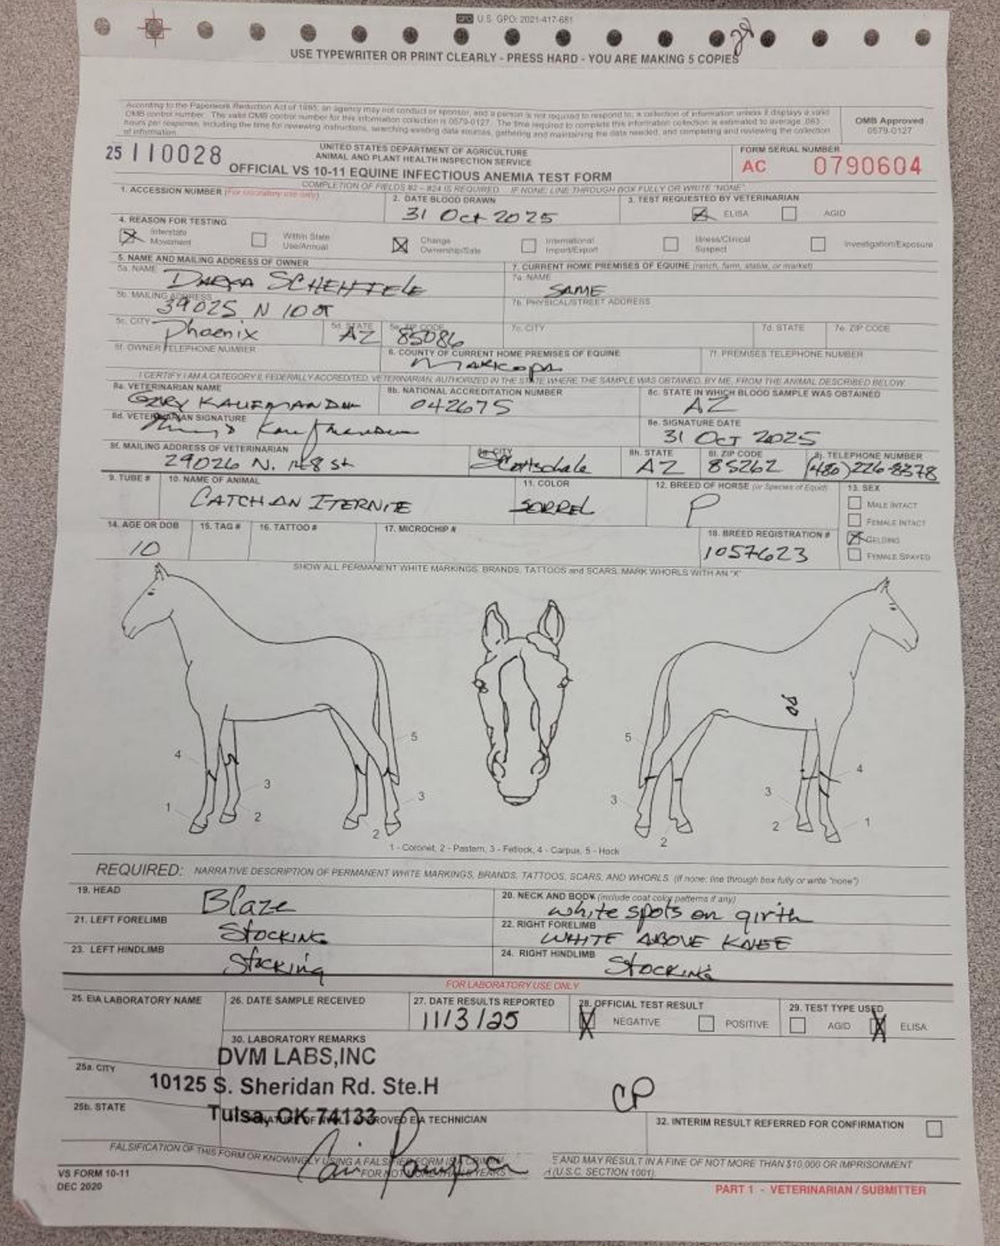 GPO U.S. GPO: 2021-417-681
28
USE TYPEWRITER OR PRINT CLEARLY - PRESS HARD - YOU ARE MAKING 5 COPIES
According to the Paperwork Reduction Act of 1995, an agency may not conduct or sponsor, and a person is not required to respond to, a collection of information unless it displays a valid
OMB control number. The valid OMB control number for this information collection is 0579-0127. The time required to complete this information collection is estimated to average .083
hours per response, including the time for reviewing instructions, searching existing data sources, gathering and maintaining the data needed, and completing and reviewing the collection
of information.
OMB Approved
0579-0127
25 110028
UNITED STATES DEPARTMENT OF AGRICULTURE
ANIMAL AND PLANT HEALTH INSPECTION SERVICE
OFFICIAL VS 10-11 EQUINE INFECTIOUS ANEMIA TEST FORM
FORM SERIAL NUMBER
AC 0790604
COMPLETION OF FIELDS #2 - #24 IS REQUIRED. IF NONE: LINE THROUGH BOX FULLY OR WRITE "NONE".
1. ACCESSION NUMBER (For laboratory use only)
2. DATE BLOOD DRAWN
31 Oct 2025
3. TEST REQUESTED BY VETERINARIAN
ELISA AGID
4. REASON FOR TESTING
Interstate Movement
Within State Use/Annual
Change Ownership/Sale
International Import/Export
Illness/Clinical Suspect
Investigation/Exposure
5. NAME AND MAILING ADDRESS OF OWNER
7. CURRENT HOME PREMISES OF EQUINE (ranch, farm, stable, or market)
5a. NAME
7a. NAME
SAME
5b. MAILING ADDRESS
39025 N 10
7b. PHYSICAL/STREET ADDRESS
5c. CITY
Phoenix
5d. STATE
AZ
5e. ZIP CODE
85086
7c. CITY
7d. STATE
7e. ZIP CODE
5f. OWNER TELEPHONE NUMBER
6. COUNTY OF CURRENT HOME PREMISES OF EQUINE
Maricopa
7f. PREMISES TELEPHONE NUMBER
I CERTIFY I AM A CATEGORY II, FEDERALLY ACCREDITED, VETERINARIAN, AUTHORIZED IN THE STATE WHERE THE SAMPLE WAS OBTAINED, BY ME, FROM THE ANIMAL DESCRIBED BELOW.
8a. VETERINARIAN NAME
GARY KAUFMAN DVM
8b. NATIONAL ACCREDITATION NUMBER
042675
8c. STATE IN WHICH BLOOD SAMPLE WAS OBTAINED
AZ
8d. VETERINARIAN SIGNATURE
8e. SIGNATURE DATE
31 OCT 2025
8f. MAILING ADDRESS OF VETERINARIAN
29026 N. 148 St
8g. CITY
Scottsdale
8h. STATE
AZ
8i. ZIP CODE
85262
8j. TELEPHONE NUMBER
(480)226-8378
9. TUBE #
10. NAME OF ANIMAL
CATCH AN ITERNITE
11. COLOR
SORREL
12. BREED OF HORSE (or Species of Equid)
P
13. SEX
MALE INTACT
FEMALE INTACT
GELDING
FEMALE SPAYED
14. AGE OR DOB
10
15. TAG #
16. TATTOO #
17. MICROCHIP #
18. BREED REGISTRATION #
1057623
SHOW ALL PERMANENT WHITE MARKINGS, BRANDS, TATTOOS and SCARS. MARK WHORLS WITH AN "X"
4 5 5 4
3 3
1 2 3 3 2 1
2 2
1 - Coronet, 2 - Pastern, 3 - Fetlock, 4 - Carpus, 5 - Hock
REQUIRED: NARRATIVE DESCRIPTION OF PERMANENT WHITE MARKINGS, BRANDS, TATTOOS, SCARS, AND WHORLS. (If none: line through box fully or write "none")
19. HEAD
Blaze
20. NECK AND BODY (include coat color patterns if any)
white spots on girth
21. LEFT FORELIMB
STOCKING
22. RIGHT FORELIMB
WHITE ABOVE KNEE
23. LEFT HINDLIMB
Stocking
24. RIGHT HINDLIMB
STOCKING
FOR LABORATORY USE ONLY
25. EIA LABORATORY NAME
26. DATE SAMPLE RECEIVED
27. DATE RESULTS REPORTED
11/3/25
28. OFFICIAL TEST RESULT
NEGATIVE POSITIVE
29. TEST TYPE USED
AGID ELISA
30. LABORATORY REMARKS
DVM LABS,INC
25a. CITY
10125 S. Sheridan Rd. Ste.H
CP
25b. STATE
Tulsa, OK 74133
APPROVED EIA TECHNICIAN
32. INTERIM RESULT REFERRED FOR CONFIRMATION
FALSIFICATION OF THIS FORM OR KNOWINGLY USING A FALSIFIED FORM IS A
E AND MAY RESULT IN A FINE OF NOT MORE THAN $10,000 OR IMPRISONMENT
FOR NOT MORE THAN 5 YEARS (U.S.C. SECTION 1001).
VS FORM 10-11
DEC 2020
PART 1 - VETERINARIAN / SUBMITTER